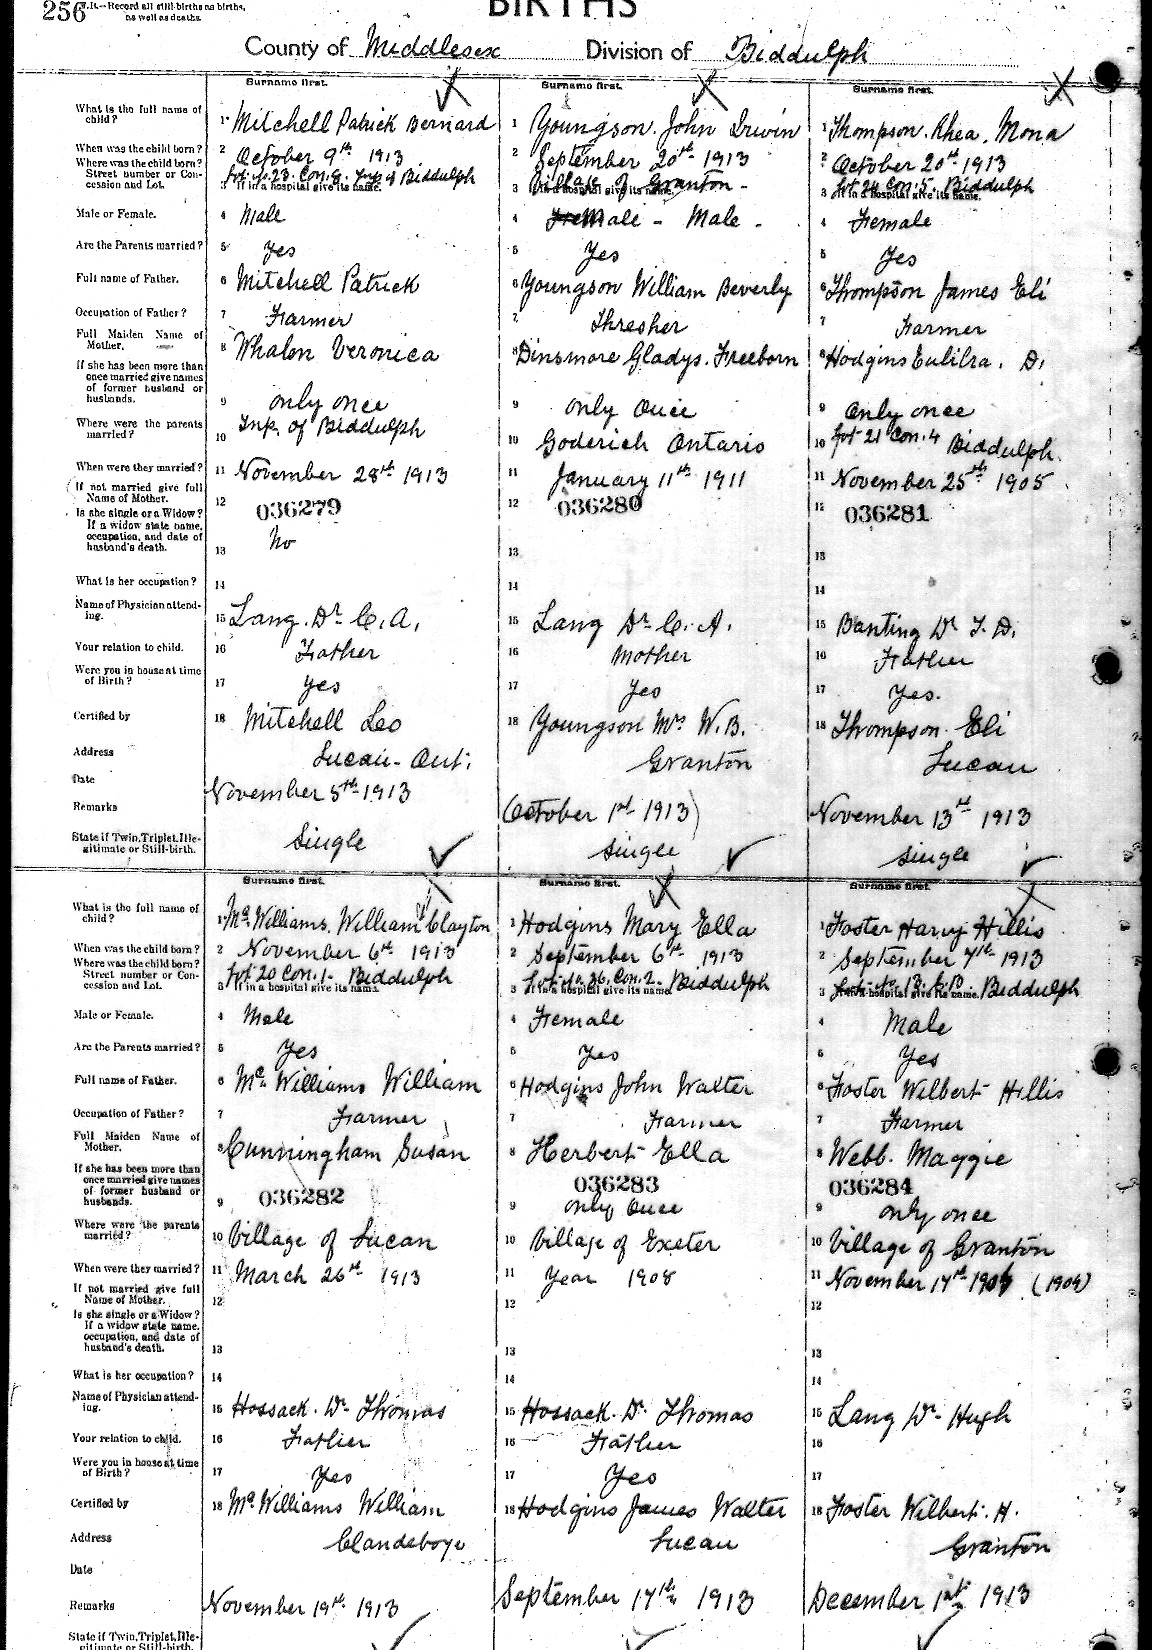 256
N.B.—Record all still-births as births,
as well as deaths.
BIRTHS
County of Middlesex Division of Biddulph
Surname first. Surname first. Surname first.
What is the full name of child? 1 Mitchell Patrick Bernard 1 Youngson. John Irwin 1 Thompson. Rhea. Mona
When was the child born? 2 October 9th 1913 2 September 20th 1913 2 October 20th 1913
Where was the child born? Street number or Concession and Lot. 3 If in a hospital give its name. Lot No. 23. Con. 9. Twp of Biddulph 3 If in a hospital give its name. Village of Granton - 3 If in a hospital give its name. Lot 24 Con. 5. Biddulph
Male or Female. 4 Male 4 FeMale - Male - 4 Female
Are the Parents married? 5 Yes 5 Yes 5 Yes
Full name of Father. 6 Mitchell Patrick 6 Youngson William Beverly 6 Thompson James Eli
Occupation of Father? 7 Farmer 7 Thresher 7 Farmer
Full Maiden Name of Mother. 8 Whalen Veronica 8 Dinsmore Gladys. Freeborn 8 Hodgins D.
If she has been more than once married give names of former husband or husbands. 9 only once 9 only once 9 Only once
Where were the parents married? 10 Twp. of Biddulph 10 Goderich Ontario 10 Lot 21 Con. 4 Biddulph.
When were they married? 11 November 28th 1913 11 January 11th 1911 11 November 25th 1905
If not married give full Name of Mother. 12 036279 12 036280 12 036281
Is she single or a Widow? If a widow state name, occupation, and date of husband's death. 13 No 13 13
What is her occupation? 14 14 14
Name of Physician attending. 15 Lang. Dr C. A. 15 Lang Dr C. A. 15 Banting Dr T. D.
Your relation to child. 16 Father 16 Mother 16 Father
Were you in house at time of Birth? 17 yes 17 Yes 17 Yes.
Certified by 18 Mitchell Leo 18 Youngson Mrs W. B. 18 Thompson Eli
Address Lucan - Ont. Granton Lucan
Date November 5th 1913 (October 1st 1913) November 13th 1913
Remarks
State if Twin, Triplet, Illegitimate or Still-birth. Single Single Single
Surname first. Surname first. Surname first.
What is the full name of child? 1 Mc Williams. William Clayton 1 Hodgins Mary Ella 1 Foster Harvy Hillis
When was the child born? 2 November 6th 1913 2 September 6th 1913 2 September 7th 1913
Where was the child born? Street number or Concession and Lot. 3 If in a hospital give its name. Lot 20 Con. 1. Biddulph 3 If in a hospital give its name. Lot No. 36. Con. 2. Biddulph 3 If in a hospital give its name. Lot No 13. Biddulph
Male or Female. 4 Male 4 Female 4 Male
Are the Parents married? 5 Yes 5 Yes 5 Yes
Full name of Father. 6 Mc Williams William 6 Hodgins John Walter 6 Foster Wilbert Hillis
Occupation of Father? 7 Farmer 7 Farmer 7 Farmer
Full Maiden Name of Mother. 8 Cunningham Susan 8 Herbert Ella 8 Webb. Maggie
If she has been more than once married give names of former husband or husbands. 9 036282 9 036283 only once 9 036284 only once
Where were the parents married? 10 Village of Lucan 10 Village of Exeter 10 Village of Granton
When were they married? 11 March 26th 1913 11 Year 1908 11 November 17th 1909 (1909)
If not married give full Name of Mother. 12 12 12
Is she single or a Widow? If a widow state name, occupation, and date of husband's death. 13 13 13
What is her occupation? 14 14 14
Name of Physician attending. 15 Hossack. Dr Thomas 15 Hossack. Dr. Thomas 15 Lang Dr Hugh
Your relation to child. 16 Father 16 Father 16
Were you in house at time of Birth? 17 Yes 17 Yes 17
Certified by 18 Mc Williams William 18 Hodgins James Walter 18 Foster Wilbert. H.
Address Clandeboye Lucan Granton
Date
Remarks November 19th 1913 September 17th 1913 December 1st 1913
State if Twin, Triplet, Illegitimate or Still-birth.